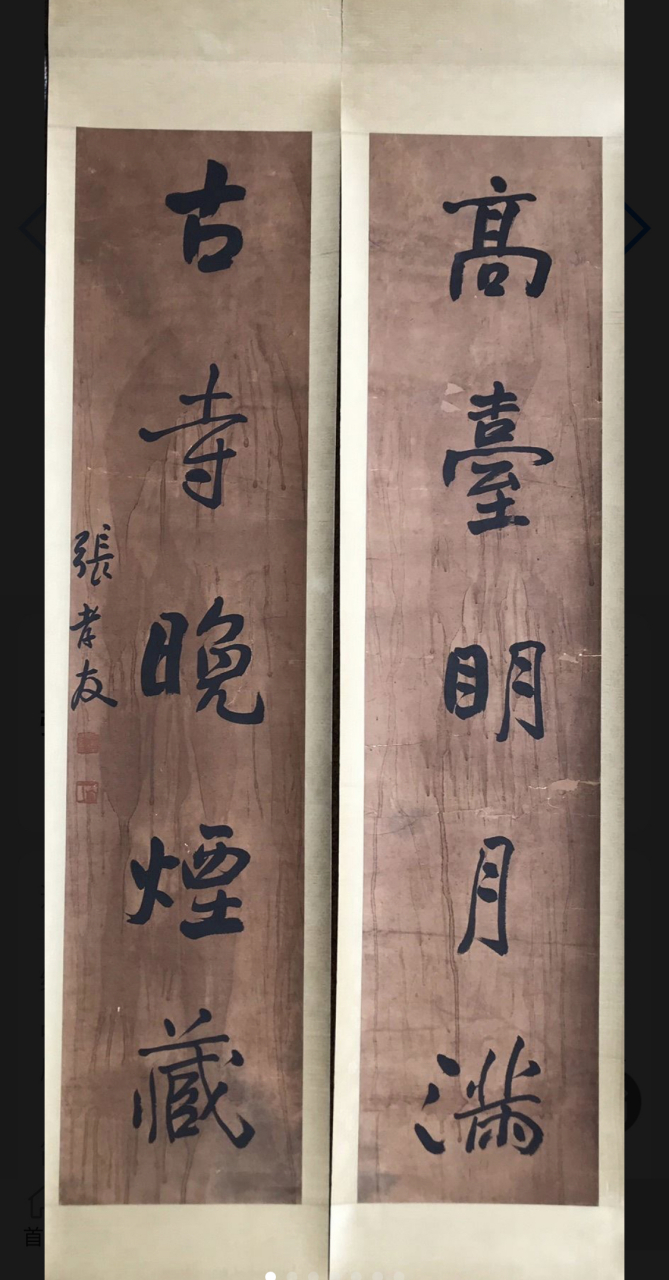 高臺明月滿
古寺晚煙藏
張孝友
首